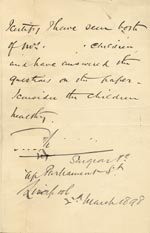 I have seen both
of Mrs. children
and have answered the
questions on the paper.
I consider the children
healthy.
Surgeon &c
Up. Parliament St
Liverpool
March 1898